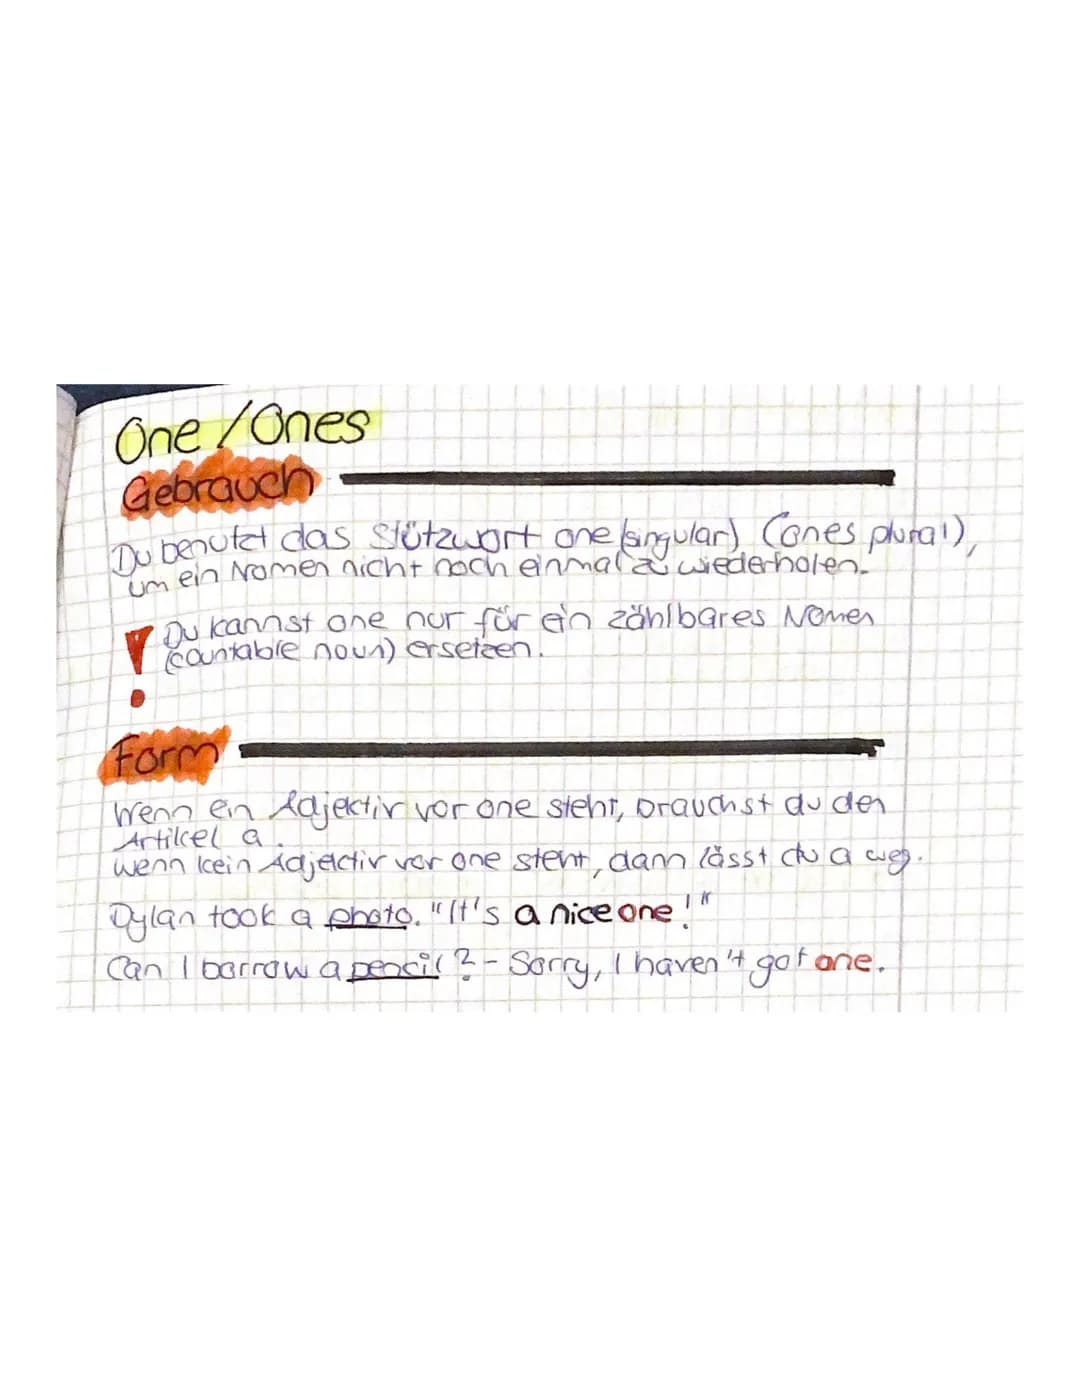 One / Ones
Gebrauch
Du benutzt das Stützwort one (singular) (ones plural),
um ein Nomen nicht noch einmal zu wiederholen.
! Du kannst one nur für ein zählbares Nomen
(countable noun) ersetzen.
Form
Wenn ein Adjektiv vor one steht, brauchst du den
Artikel a.
Wenn kein Adjektiv vor one steht, dann lässt du a weg.
Dylan took a photo. "It's a nice one!"
Can I borrow a pencil? - Sorry, I haven't got one.